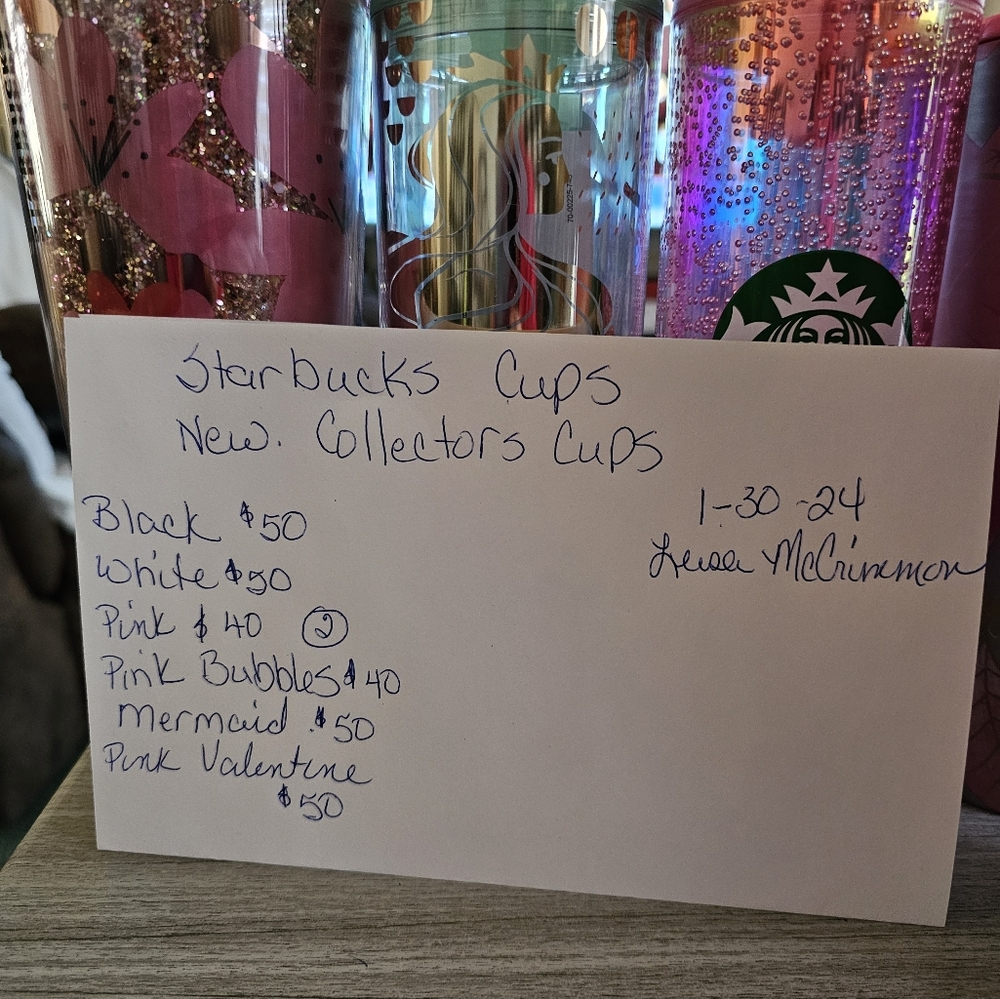 70-00225-7
Starbucks Cups
New. Collectors Cups
1-30-24
McCrimmon
Black $50
White $50
Pink $40 2
Pink Bubbles $40
Mermaid $50
Pink Valentine
$50